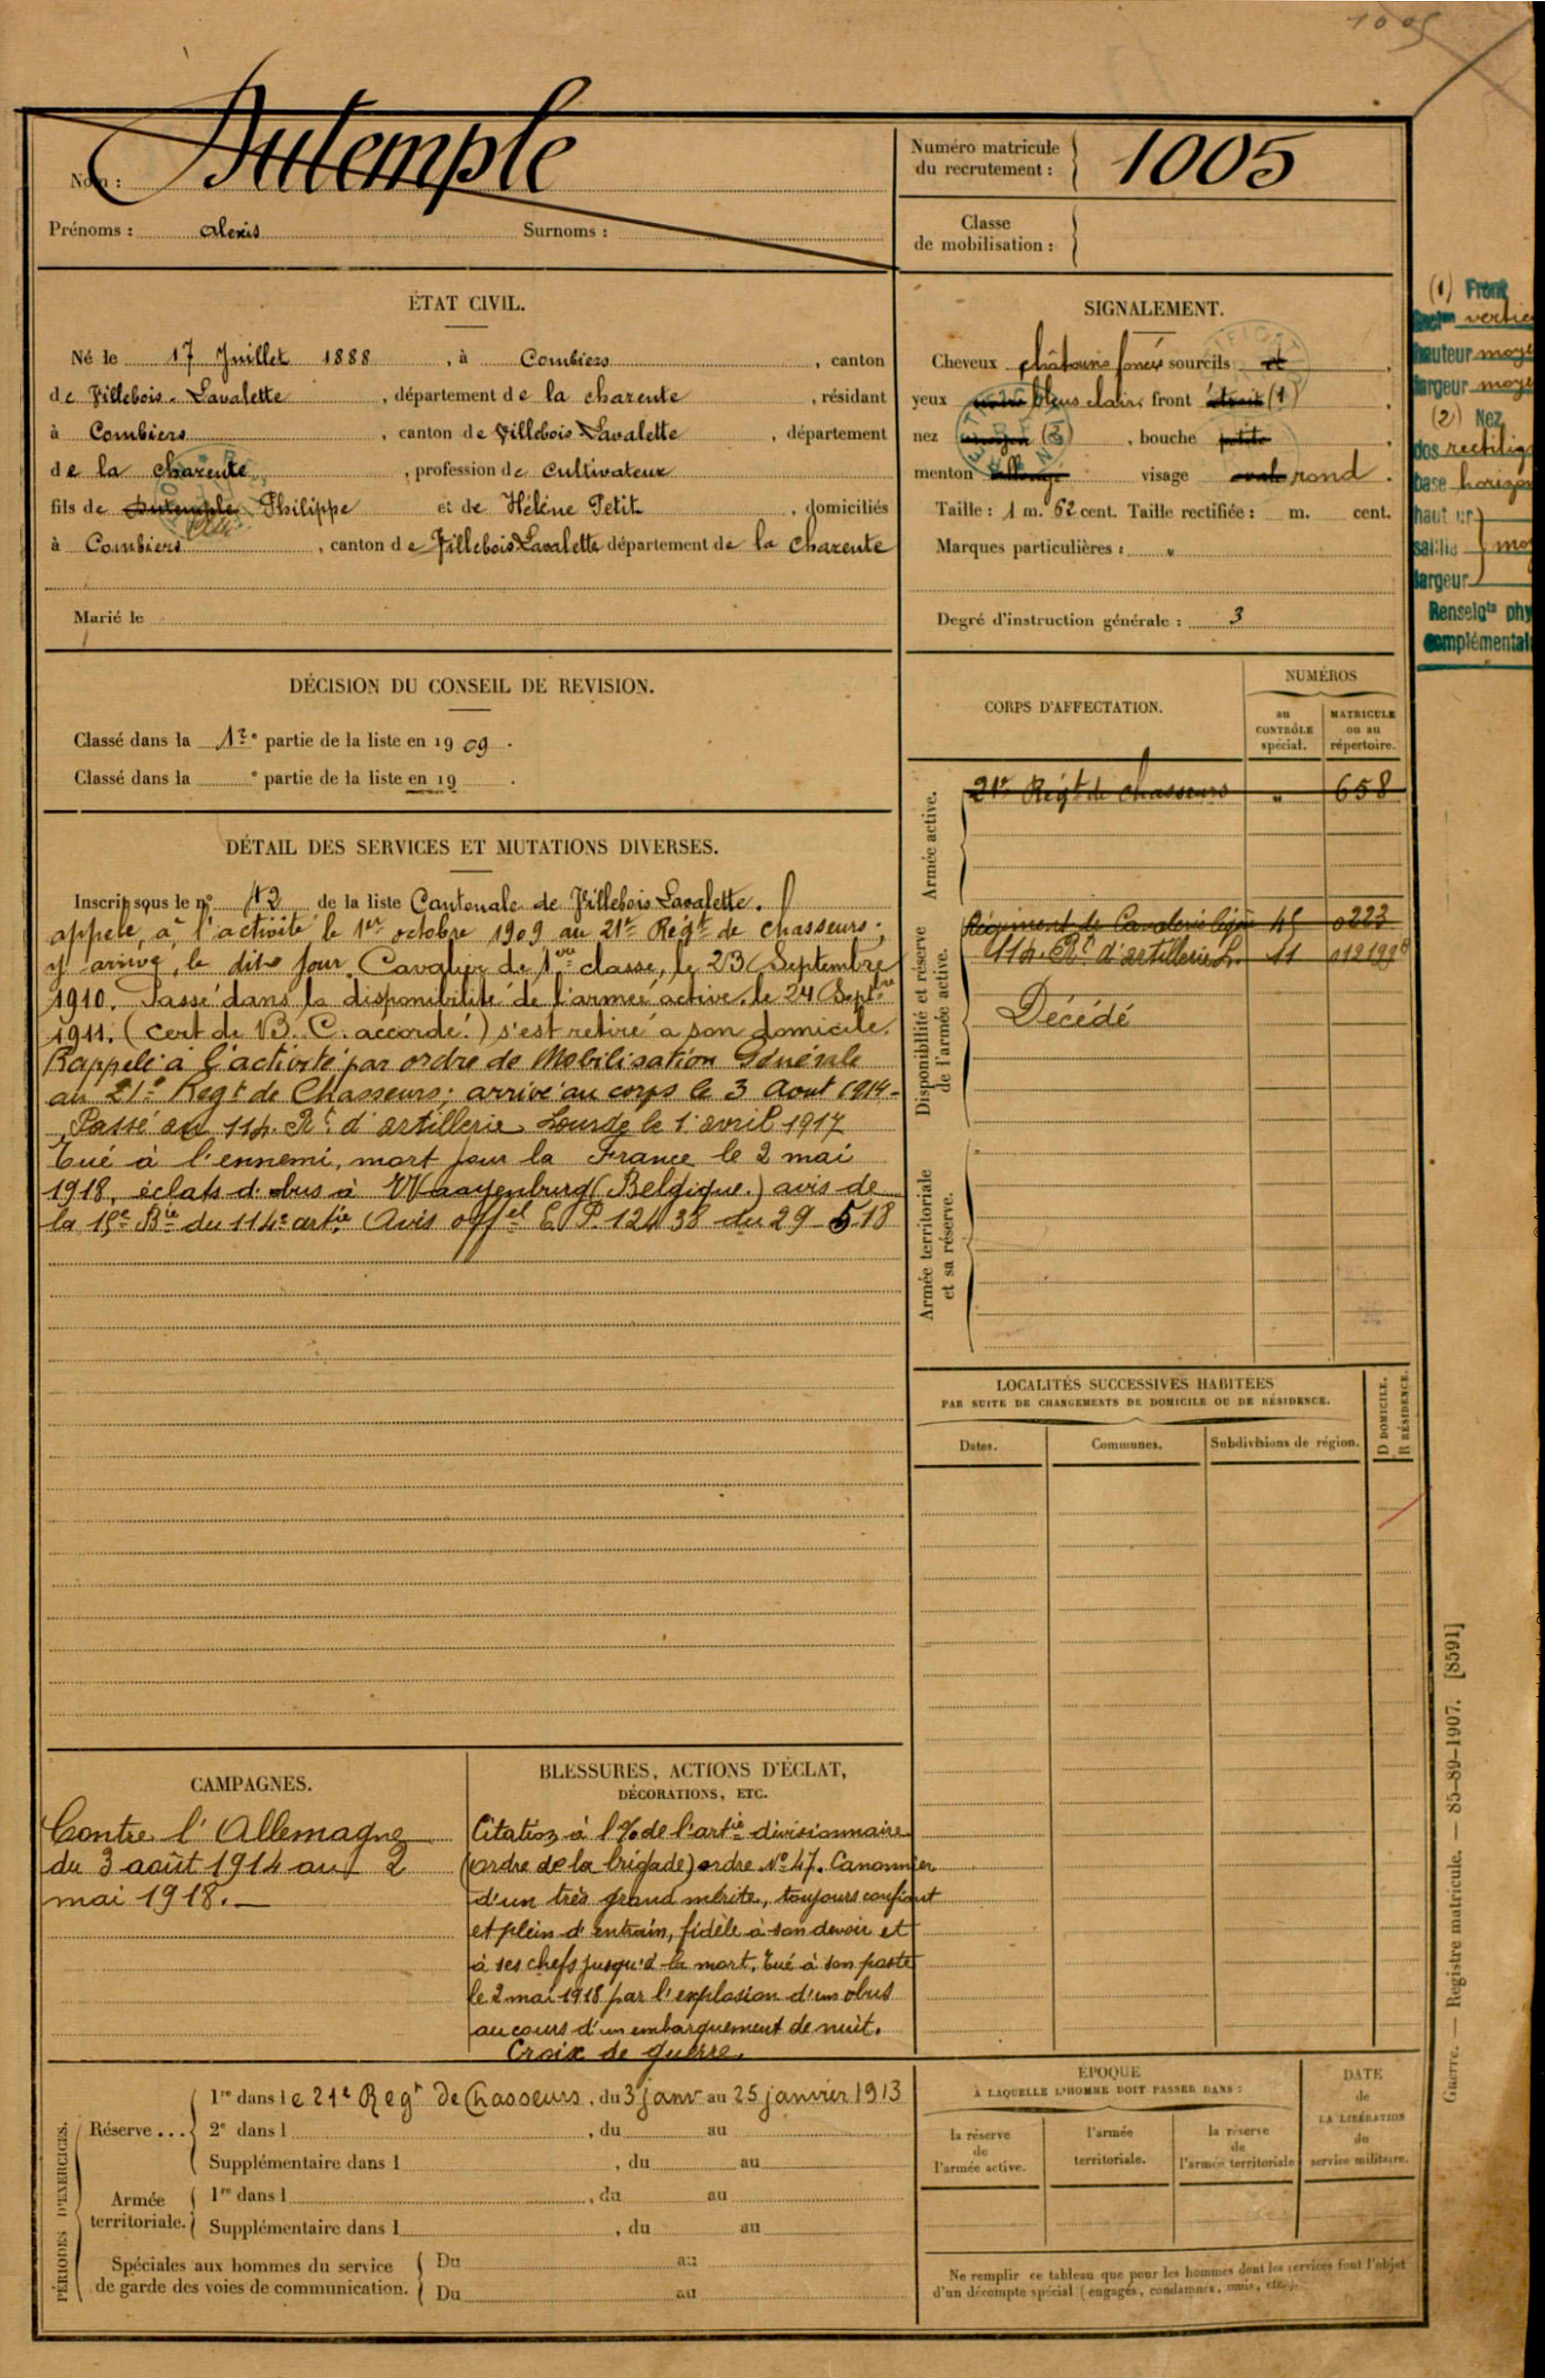 1005
Nom : Dutemple
Prénoms : Alexis Surnoms :
Numéro matricule
du recrutement : 1005
Classe
de mobilisation :
ÉTAT CIVIL.
Né le 17 Juillet 1888, à Combiers, canton
de Villebois-Lavalette, département de la charente, résidant
à Combiers, canton de Villebois Lavalette, département
de la charente, profession de Cultivateur
fils de Dutemple Philippe et de Hélène Petit, domiciliés
à Combiers, canton de Villebois Lavalette département de la Charente
Marié le
SIGNALEMENT.
Cheveux châtains foncés sourcils
yeux bleus clairs front étroit (1)
nez moyen (2), bouche petite
menton visage ovale rond.
Taille : 1 m. 62 cent. Taille rectifiée : m. cent.
Marques particulières : "
Degré d'instruction générale : 3
(1) Front
vertic
hauteur moye
largeur moye
(2) Nez
dos rectilig
base horizon
hautur
saillie mo
largeur
Renseigts phy
complémentai
DÉCISION DU CONSEIL DE REVISION.
Classé dans la 1re partie de la liste en 1909.
Classé dans la e partie de la liste en 19 .
DÉTAIL DES SERVICES ET MUTATIONS DIVERSES.
Inscrit sous le no de la liste Cantonale de Villebois Lavalette.
appelé, à l'activité le 1er octobre 1909 au 21e Régt de chasseurs;
y arrivé, le dit jour. Cavalier de 1re classe, le 23 Septembre
1910. Passé dans la disponibilité de l'armée active, le 24 Septbre
1911. (Cert de B. C. accordé.) s'est retiré à son domicile.
Rappelé à l'activité par ordre de Mobilisation Générale
au 21e Regt de Chasseurs; arrivé au corps le 3 Aout 1914-
Passé au 114. Rt d'artillerie Lourde le 1er avril 1917
Tué à l'ennemi, mort pour la France le 2 mai
1918, éclats d'obus à Waayenburg (Belgique.) avis de
la 15e Bie du 114e artie (Avis offel E.P. 12438 du 29-5-18
CORPS D'AFFECTATION.
NUMÉROS
au
CONTRÔLE
spécial.
MATRICULE
ou au
répertoire.
Armée active.
21e Régt de chasseurs " 658
Disponibilité et réserve
de l'armée active.
Régiment de Cavalerie légère 0223
114. Rt d'artillerie L. 11
Décédé
Armée territoriale
et sa réserve.
LOCALITÉS SUCCESSIVES HABITÉES
PAR SUITE DE CHANGEMENTS DE DOMICILE OU DE RÉSIDENCE.
Dates. Communes. Subdivisions de région.
D DOMICILE.
R RÉSIDENCE.
CAMPAGNES.
Contre l'Allemagne
du 3 août 1914 au 2
mai 1918.-
BLESSURES, ACTIONS D'ÉCLAT,
DÉCORATIONS, ETC.
Citation à l'% de l'artie divisionnaire
(ordre de la brigade) ordre No 47. Canonnier
d'un très grand mérite, toujours confiant
et plein d'entrain, fidèle à son devoir et
à ses chefs jusqu'à la mort, tué à son poste
le 2 mai 1918 par l'explosion d'un obus
au cours d'un embarquement de nuit.
Croix de guerre.
PÉRIODES D'EXERCICES.
Réserve ...
1re dans le 21e Regt de Chasseurs, du 3 janv au 25 janvier 1913
2e dans l , du au
Supplémentaire dans l , du au
Armée
territoriale.
1re dans l , du au
Supplémentaire dans l , du au
Spéciales aux hommes du service
de garde des voies de communication.
Du au
Du au
ÉPOQUE
À LAQUELLE L'HOMME DOIT PASSER DANS :
la réserve
de
l'armée active.
l'armée
territoriale.
la réserve
de
l'armée territoriale
DATE
de
LA LIBÉRATION
du
service militaire.
Ne remplir ce tableau que pour les hommes dont les services font l'objet
d'un décompte spécial (engagés, condamnés, omis, etc.).
Guerre. — Registre matricule. — 85-89-1907. [8591]